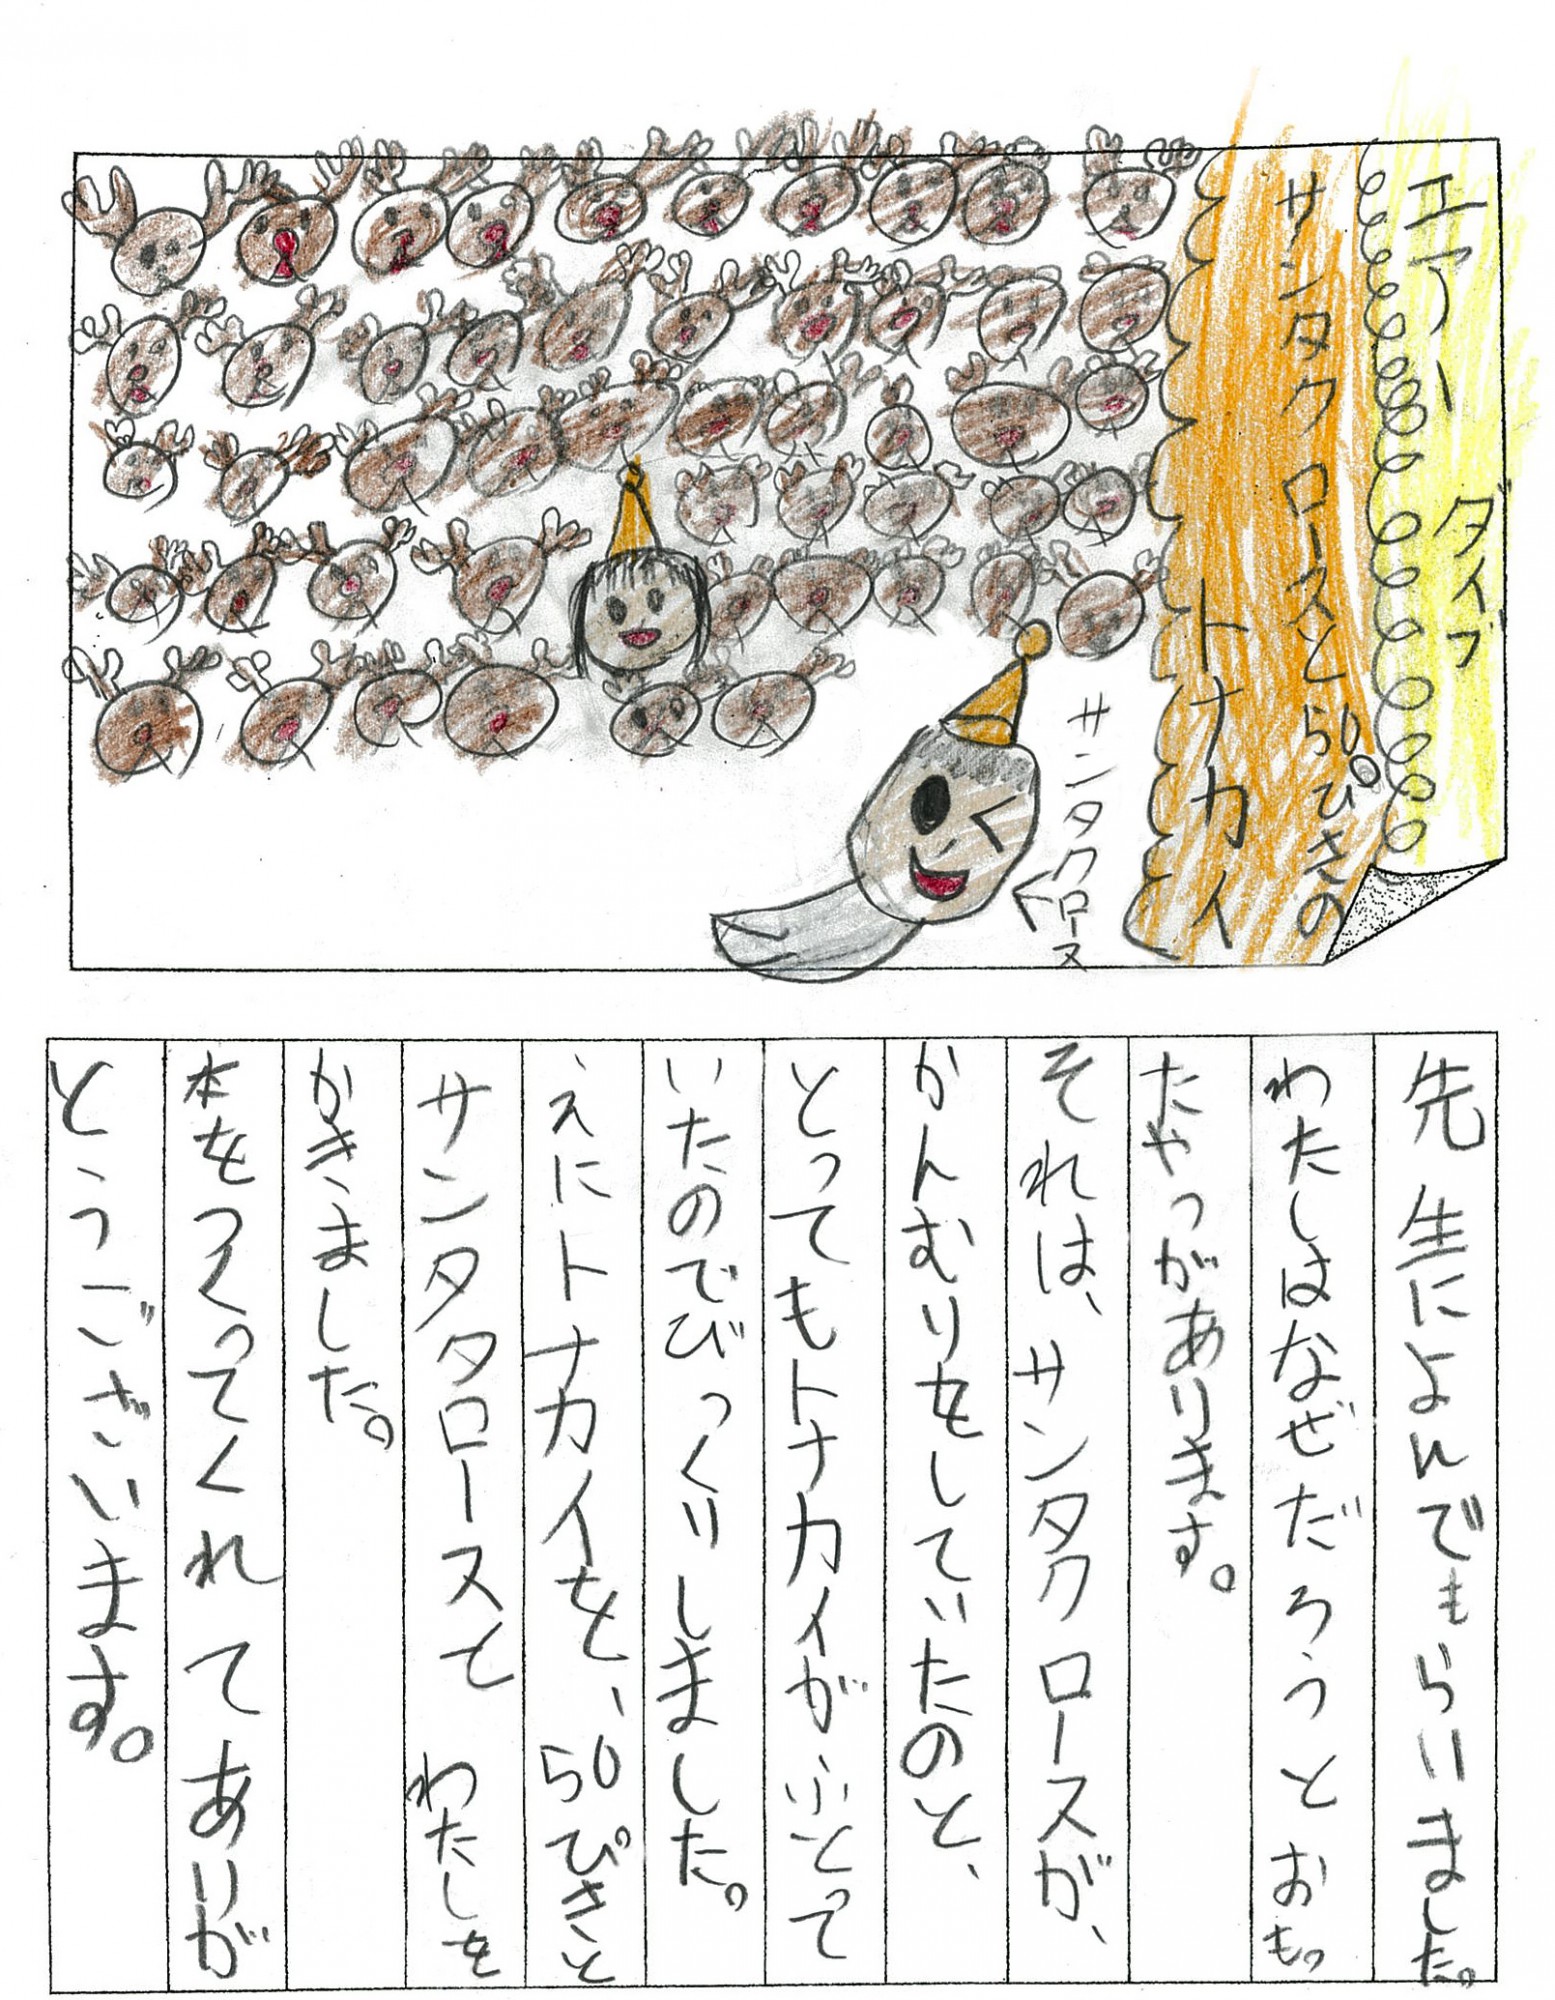 エアーダイブ
サンタクロースと50ぴきの
トナカイ
サンタクロース
先生によんでもらいました。
わたしはなぜだろうとおもっ
たやつがあります。
それは、サンタクロースが、
かんむりをしていたのと、
とってもトナカイがふとって
いたのでびっくりしました。
えにトナカイを、50ぴきと
サンタタロースと わたしを
かきました。
本をつくってくれてありが
とうございます。